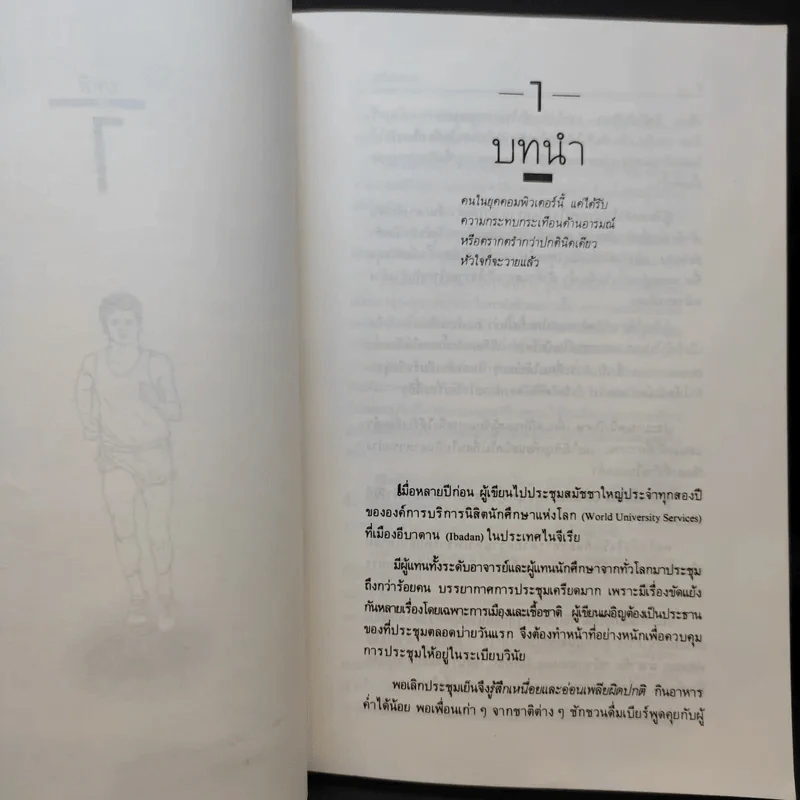 บทที่
1
— 1 —
บทนำ
คนในยุคคอมพิวเตอร์นี้ แค่ได้รับ
ความกระทบกระเทือนด้านอารมณ์
หรือตรากตรำกว่าปกตินิดเดียว
หัวใจก็จะวายแล้ว
เมื่อหลายปีก่อน ผู้เขียนไปประชุมสมัชชาใหญ่ประจำทุกสองปี
ขององค์การบริการนิสิตนักศึกษาแห่งโลก (World University Services)
ที่เมืองอีบาดาน (Ibadan) ในประเทศไนจีเรีย
มีผู้แทนทั้งระดับอาจารย์และผู้แทนนักศึกษาจากทั่วโลกมาประชุม
ถึงกว่าร้อยคน บรรยากาศการประชุมเครียดมาก เพราะมีเรื่องขัดแย้ง
กันหลายเรื่องโดยเฉพาะการเมืองและเชื้อชาติ ผู้เขียนเผอิญต้องเป็นประธาน
ของที่ประชุมตลอดบ่ายวันแรก จึงต้องทำหน้าที่อย่างหนักเพื่อควบคุม
การประชุมให้อยู่ในระเบียบวินัย
พอเลิกประชุมเย็นจึงรู้สึกเหนื่อยและอ่อนเพลียผิดปกติ กินอาหาร
ค่ำได้น้อย พอเพื่อนเก่า ๆ จากชาติต่าง ๆ ชักชวนดื่มเบียร์พูดคุยกับผู้